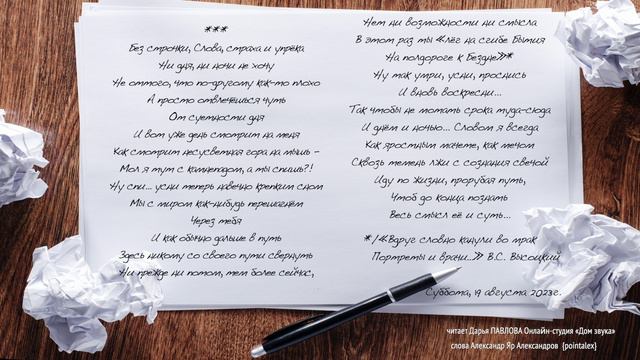 ***
Без строчки, Слова, страха и упрёка
Ни дня, ни ночи не хочу
Не оттого, что по-другому как-то плохо
А просто отвлечёшься чуть
От суетности дня
И вот уже день смотрит на меня
Как смотрит несусветная гора на мышь –
Мол я тут с камнепадом, а ты спишь?!
Ну спи... усни теперь навечно крепким сном
Мы с миром как-нибудь перешагнём
Через тебя
И как обычно дальше в путь
Здесь никому со своего пути свернуть
Ни прежде ни потом, тем более сейчас,
Нет ни возможности ни смысла
В этот раз ты «лёг на сгибе Бытия
На полдороге к Бездне»*
Ну так умри, усни, проснись
И вновь воскресни...
Так чтобы не мотать срока туда-сюда
И днём и ночью... Словом я всегда
Как яростным мачете, как мечом
Сквозь темень лжи с сознания свечой
Иду по жизни, прорубая путь,
Чтоб до конца познать
Весь смысл её и суть...
*/«Вдруг словно канули во мрак
Портреты и врачи...» В.С. Высоцкий
Суббота, 19 августа 2023г.
читает Дарья ПАВЛОВА Онлайн-студия «Дом звука»
слова Александр Яр Александров {pointalex}